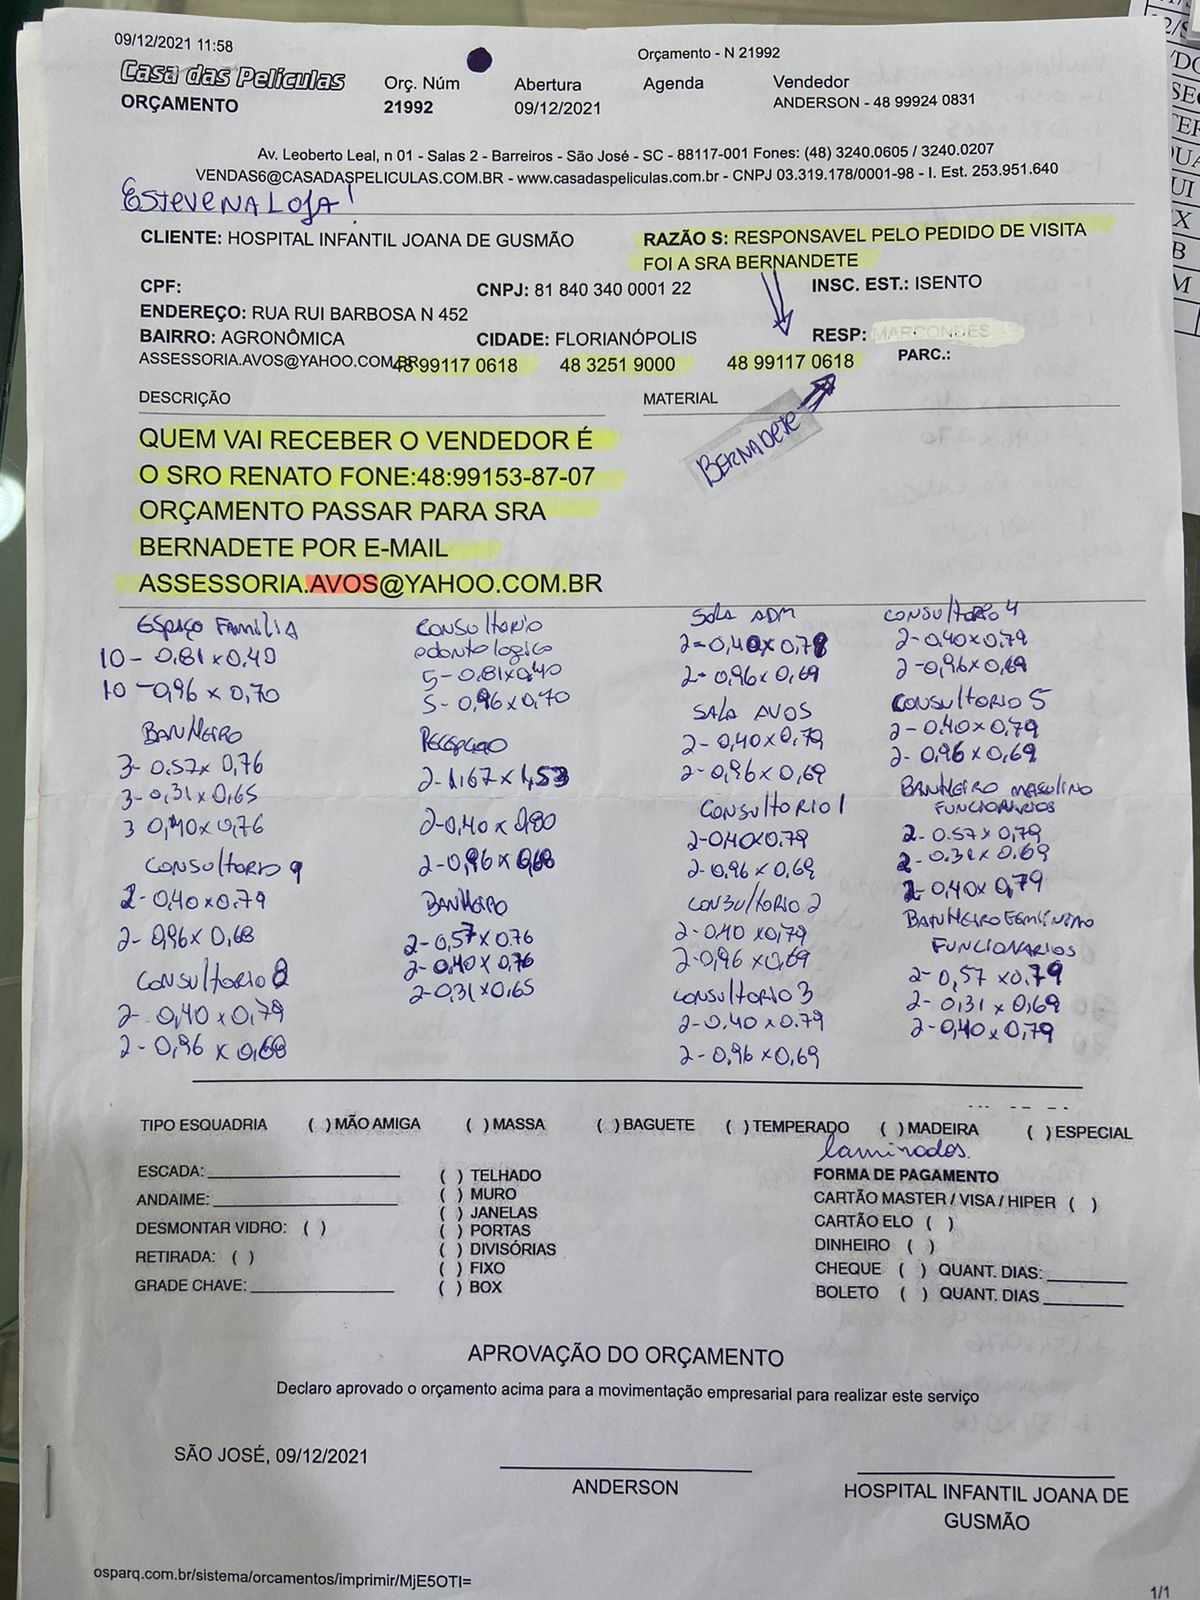 09/12/2021 11:58
Orçamento - N 21992
Casa das Películas
ORÇAMENTO
Orç. Núm
21992
Abertura
09/12/2021
Agenda
Vendedor
ANDERSON - 48 99924 0831
Av. Leoberto Leal, n 01 - Salas 2 - Barreiros - São José - SC - 88117-001 Fones: (48) 3240.0605 / 3240.0207
VENDAS6@CASADASPELICULAS.COM.BR - www.casadaspeliculas.com.br - CNPJ 03.319.178/0001-98 - I. Est. 253.951.640
ESTEVE NA LOJA!
CLIENTE: HOSPITAL INFANTIL JOANA DE GUSMÃO
RAZÃO S: RESPONSAVEL PELO PEDIDO DE VISITA
FOI A SRA BERNANDETE
CPF:
CNPJ: 81 840 340 0001 22
INSC. EST.: ISENTO
ENDEREÇO: RUA RUI BARBOSA N 452
BAIRRO: AGRONÔMICA
CIDADE: FLORIANÓPOLIS
RESP: MARCONDES
ASSESSORIA.AVOS@YAHOO.COM.BR
48 99117 0618
48 3251 9000
48 99117 0618
PARC.:
DESCRIÇÃO
MATERIAL
BERNADETE
QUEM VAI RECEBER O VENDEDOR É
O SRO RENATO FONE:48:99153-87-07
ORÇAMENTO PASSAR PARA SRA
BERNADETE POR E-MAIL
ASSESSORIA.AVOS@YAHOO.COM.BR
ESPAÇO FAMÍLIA
10 - 0,81 x 0,40
10 - 0,96 x 0,70
BANHEIRO
3- 0.57 x 0,76
3- 0,31 x 0,65
3 0,40 x 0,76
CONSULTORIO 9
2- 0,40 x 0,79
2- 0,96 x 0,68
CONSULTORIO 8
2- 0,40 x 0,79
2- 0,96 x 0,68
CONSULTORIO
odontologico
5- 0,81 x 0,40
5- 0,96 x 0,70
RECEPÇAO
2- 1,67 x 1,53
2- 0,40 x 0,80
2- 0,96 x 0,68
BANHEIRO
2- 0,57 x 0.76
2- 0,40 x 0,76
2- 0,31 x 0,65
SALA ADM
2- 0,40 x 0,79
2- 0,96 x 0,69
SALA AVOS
2- 0,40 x 0,79
2- 0,96 x 0,69
CONSULTORIO 1
2- 0,40 x 0.79
2- 0,96 x 0,69
CONSULTORIO 2
2- 0,40 x 0,79
2- 0,96 x 0,69
CONSULTORIO 3
2- 0,40 x 0.79
2- 0,96 x 0,69
CONSULTORIO 4
2- 0,40 x 0,79
2- 0,96 x 0,69
CONSULTORIO 5
2- 0,40 x 0,79
2- 0,96 x 0,69
BANHEIRO MASCULINO
FUNCIONARIOS
2- 0.57 x 0,79
2- 0.31 x 0.69
2- 0,40 x 0,79
BANHEIRO FEMININO
FUNCIONARIOS
2- 0,57 x 0.79
2- 0,31 x 0,69
2- 0,40 x 0,79
TIPO ESQUADRIA ( ) MÃO AMIGA ( ) MASSA ( ) BAGUETE ( ) TEMPERADO ( ) MADEIRA ( ) ESPECIAL
laminados.
ESCADA:
ANDAIME:
DESMONTAR VIDRO: ( )
RETIRADA: ( )
GRADE CHAVE:
( ) TELHADO
( ) MURO
( ) JANELAS
( ) PORTAS
( ) DIVISÓRIAS
( ) FIXO
( ) BOX
FORMA DE PAGAMENTO
CARTÃO MASTER / VISA / HIPER ( )
CARTÃO ELO ( )
DINHEIRO ( )
CHEQUE ( ) QUANT. DIAS:
BOLETO ( ) QUANT. DIAS
APROVAÇÃO DO ORÇAMENTO
Declaro aprovado o orçamento acima para a movimentação empresarial para realizar este serviço
SÃO JOSÉ, 09/12/2021
ANDERSON
HOSPITAL INFANTIL JOANA DE
GUSMÃO
osparq.com.br/sistema/orcamentos/imprimir/MjE5OTI=
1/1